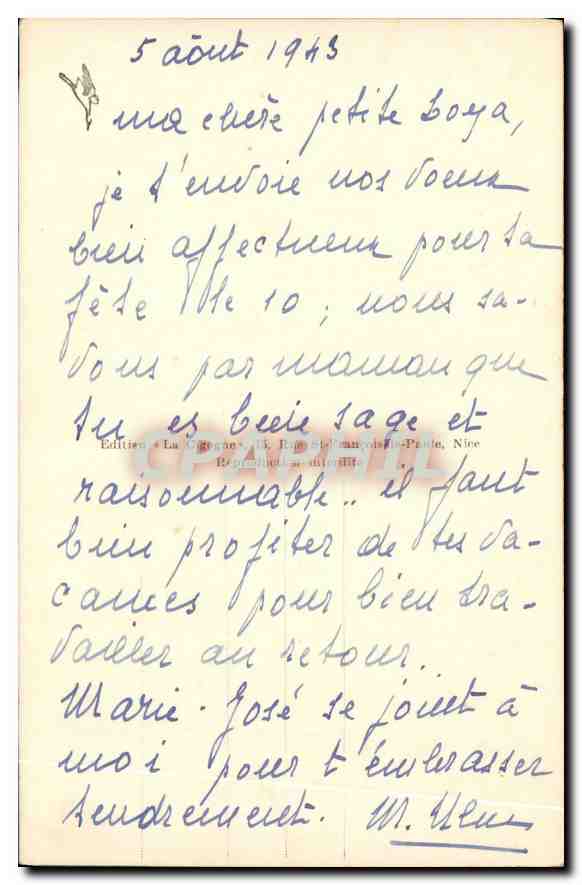 5 août 1943
ma chère petite Loya,
je t'envoie nos voeux
bien affectueux pour ta
fête le 10 ; nous sa-
vons par maman que
tu es bien sage et
Edition «La Cigogne», 15, Rue St-François-de-Paule, Nice
Reproduction interdite
CPAPHIL
raisonnable.. il faut
bien profiter de tes va-
cances pour bien tra-
vailler au retour.
Marie-José se joint à
moi pour t'embrasser
tendrement. M.